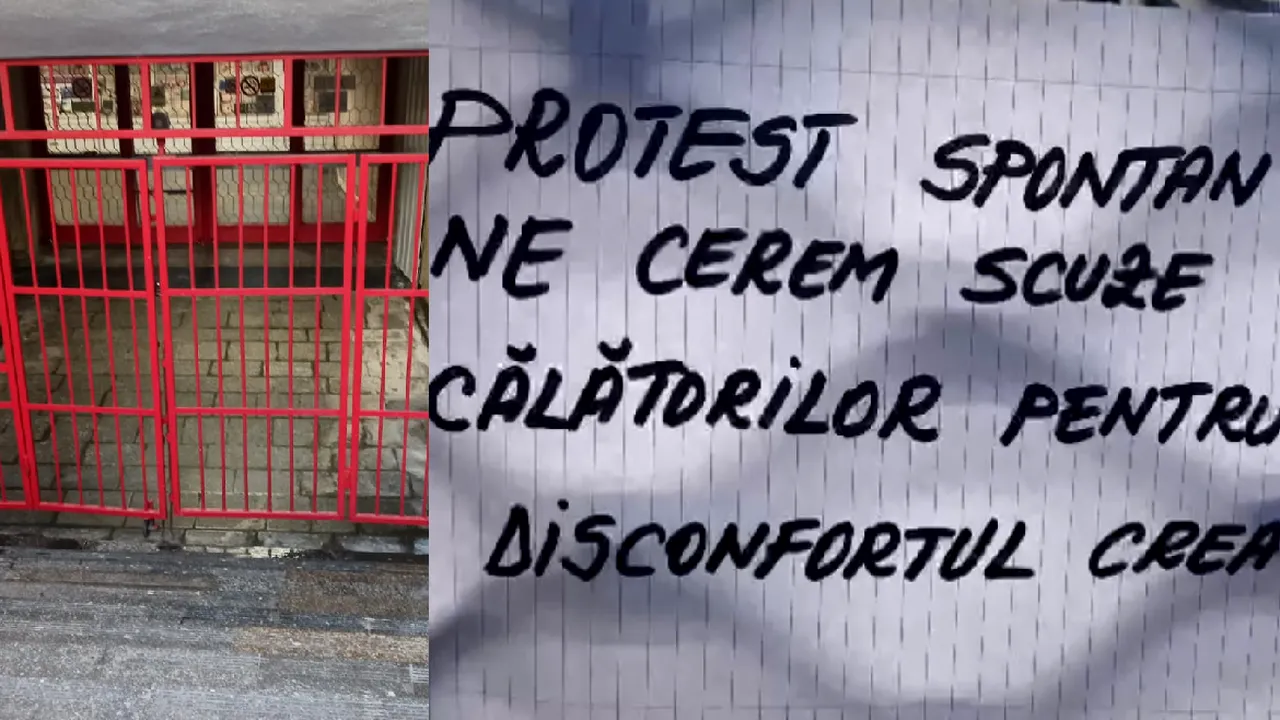 PROTEST SPONTAN
NE CEREM SCUZE
CĂLĂTORILOR PENTRU
DISCONFORTUL CREA